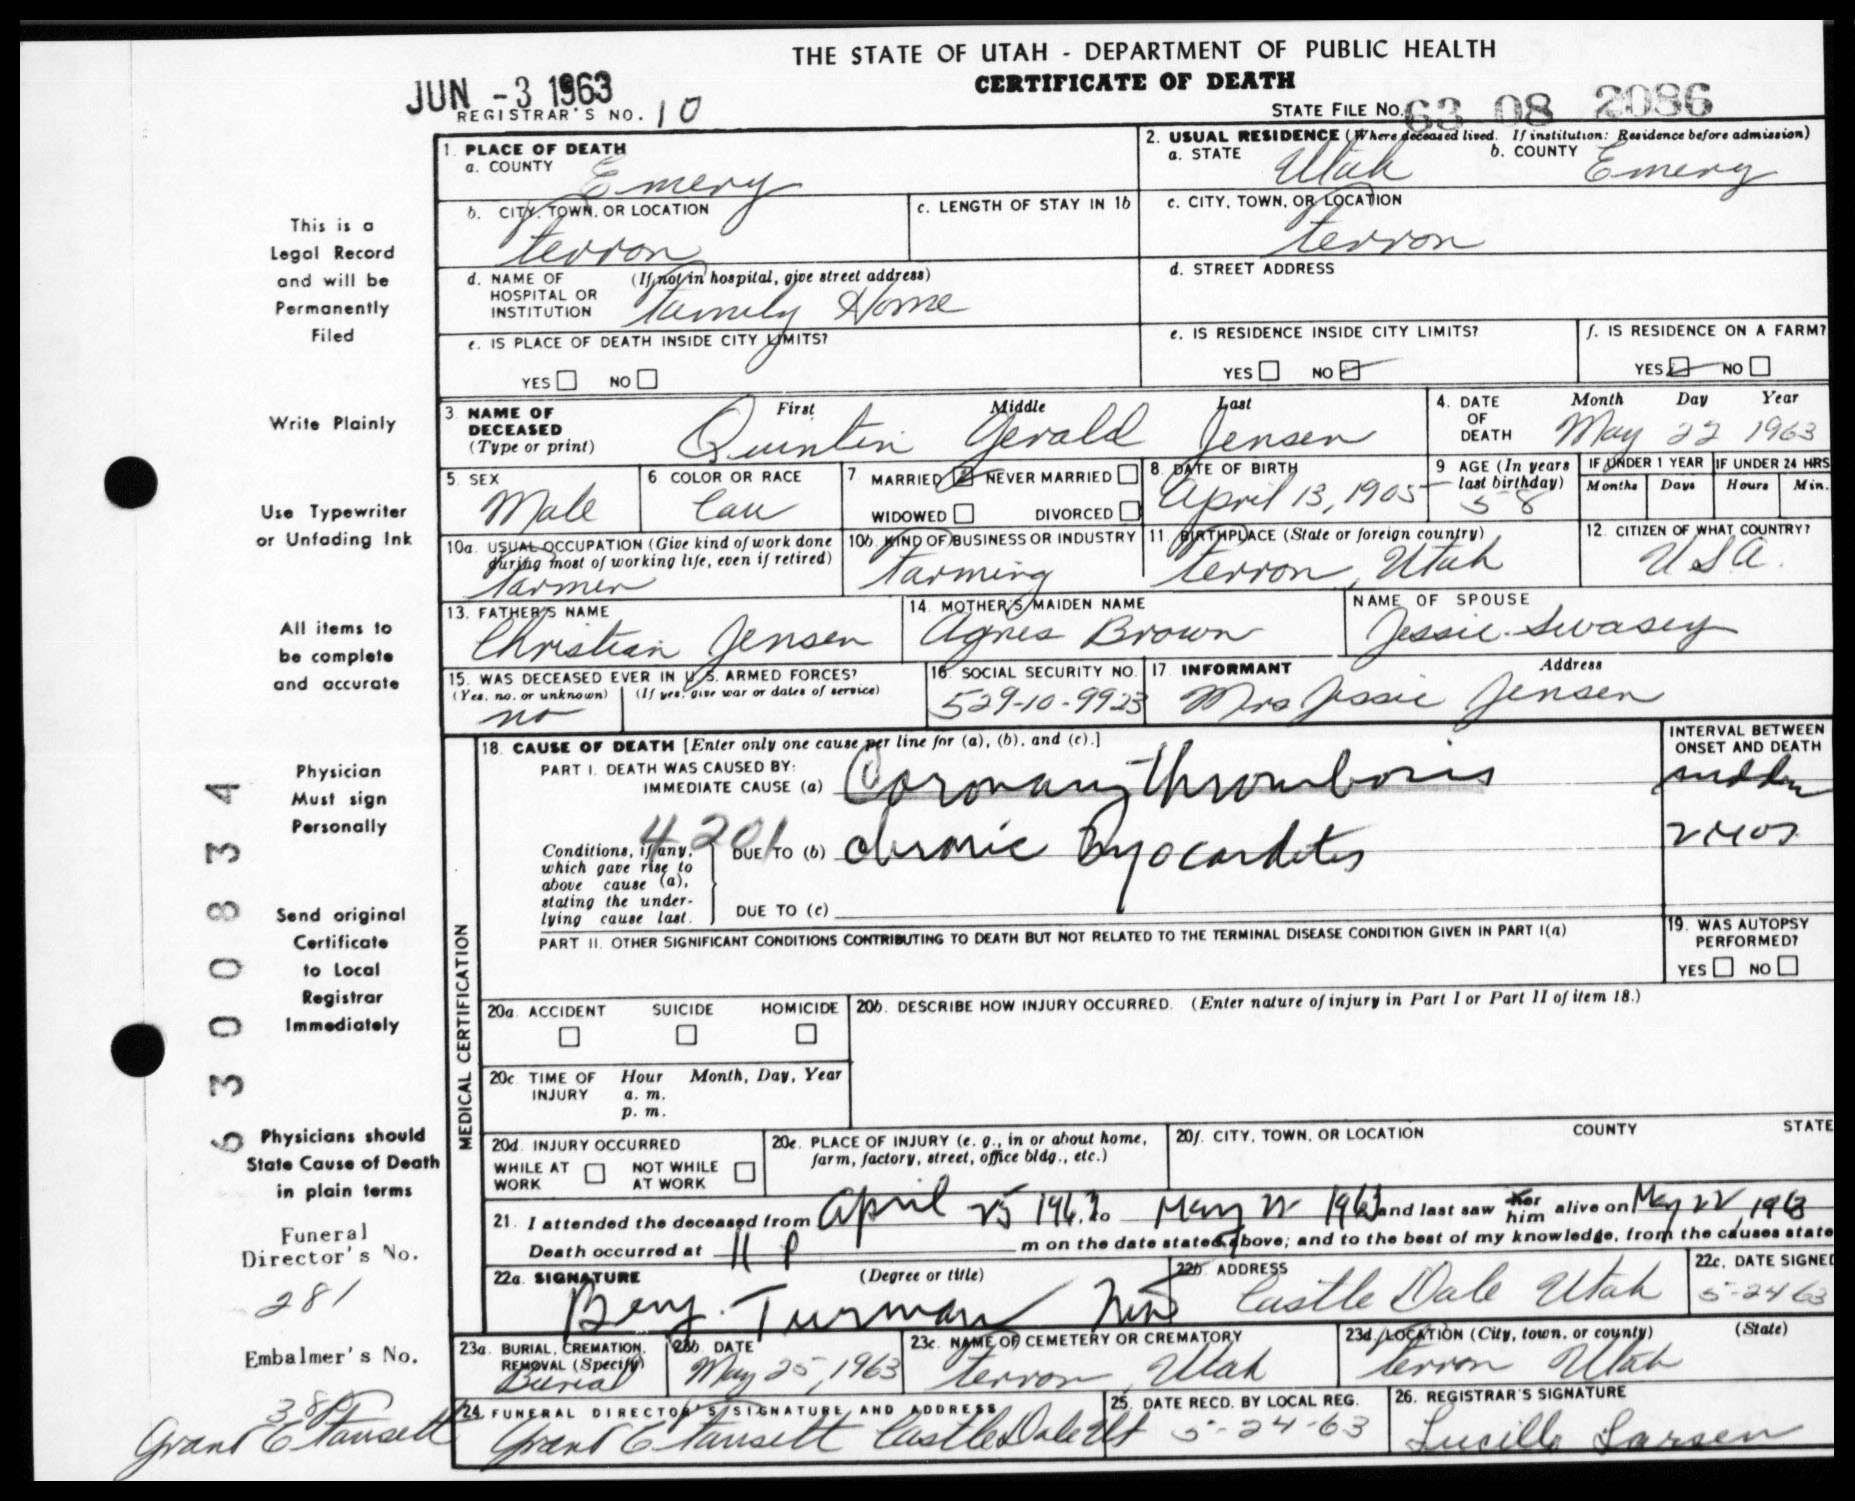 THE STATE OF UTAH - DEPARTMENT OF PUBLIC HEALTH
CERTIFICATE OF DEATH
JUN -3 1963
REGISTRAR'S NO. 10
STATE FILE NO. 63 08 2086
1. PLACE OF DEATH
a. COUNTY Emery
2. USUAL RESIDENCE (Where deceased lived. If institution: Residence before admission)
a. STATE Utah b. COUNTY Emery
b. CITY, TOWN, OR LOCATION Ferron
c. LENGTH OF STAY IN 1b
c. CITY, TOWN, OR LOCATION Ferron
d. NAME OF HOSPITAL OR INSTITUTION (If not in hospital, give street address) Family Home
d. STREET ADDRESS
e. IS PLACE OF DEATH INSIDE CITY LIMITS?
YES NO
e. IS RESIDENCE INSIDE CITY LIMITS?
YES NO
f. IS RESIDENCE ON A FARM?
YES NO
3. NAME OF DECEASED (Type or print) First Middle Last
Quintin Gerald Jensen
4. DATE OF DEATH Month Day Year
May 22 1963
5. SEX Male
6 COLOR OR RACE Cau
7 MARRIED NEVER MARRIED
WIDOWED DIVORCED
8. DATE OF BIRTH April 13, 1905
9 AGE (In years last birthday) 58
IF UNDER 1 YEAR Months Days
IF UNDER 24 HRS Hours Min.
10a. USUAL OCCUPATION (Give kind of work done during most of working life, even if retired) Farmer
10b. KIND OF BUSINESS OR INDUSTRY Farming
11. BIRTHPLACE (State or foreign country) Ferron, Utah
12. CITIZEN OF WHAT COUNTRY? U.S.A.
13. FATHER'S NAME Christian Jensen
14. MOTHER'S MAIDEN NAME Agnes Brown
NAME OF SPOUSE Jessie Swasey
15. WAS DECEASED EVER IN U.S. ARMED FORCES?
(Yes, no, or unknown) (If yes, give war or dates of service)
no
16. SOCIAL SECURITY NO. 529-10-9923
17. INFORMANT Address
Mrs Jessie Jensen
MEDICAL CERTIFICATION
18. CAUSE OF DEATH [Enter only one cause per line for (a), (b), and (c).]
INTERVAL BETWEEN ONSET AND DEATH
PART I. DEATH WAS CAUSED BY:
IMMEDIATE CAUSE (a) Coronary thrombosis sudden
4201
Conditions, if any, which gave rise to above cause (a), stating the underlying cause last.
DUE TO (b) chronic Myocarditis
DUE TO (c)
PART II. OTHER SIGNIFICANT CONDITIONS CONTRIBUTING TO DEATH BUT NOT RELATED TO THE TERMINAL DISEASE CONDITION GIVEN IN PART I(a)
19. WAS AUTOPSY PERFORMED?
YES NO
20a. ACCIDENT SUICIDE HOMICIDE
20b. DESCRIBE HOW INJURY OCCURRED. (Enter nature of injury in Part I or Part II of item 18.)
20c. TIME OF INJURY Hour Month, Day, Year
a. m.
p. m.
20d. INJURY OCCURRED
WHILE AT WORK NOT WHILE AT WORK
20e. PLACE OF INJURY (e. g., in or about home, farm, factory, street, office bldg., etc.)
20f. CITY, TOWN, OR LOCATION COUNTY STATE
21. I attended the deceased from April 25 1963 to May 22 1963 and last saw her him alive on May 22, 1963
Death occurred at 11 P m on the date stated above; and to the best of my knowledge, from the causes state
22a. SIGNATURE (Degree or title)
Benj. Turman
22b. ADDRESS Castle Dale Utah
22c. DATE SIGNED 5-24 63
23a. BURIAL, CREMATION, REMOVAL (Specify) Burial
23b. DATE May 25, 1963
23c. NAME OF CEMETERY OR CREMATORY Ferron, Utah
23d. LOCATION (City, town, or county) (State) Ferron Utah
24. FUNERAL DIRECTOR'S SIGNATURE AND ADDRESS
Grant E Fausett Castle Dale Ut
25. DATE RECD. BY LOCAL REG. 5-24-63
26. REGISTRAR'S SIGNATURE Lucille Larsen
This is a
Legal Record
and will be
Permanently
Filed
Write Plainly
Use Typewriter
or Unfading Ink
All items to
be complete
and accurate
Physician
Must sign
Personally
Send original
Certificate
to Local
Registrar
Immediately
Physicians should
State Cause of Death
in plain terms
Funeral
Director's No.
281
Embalmer's No.
Grant E Fausett
63008334